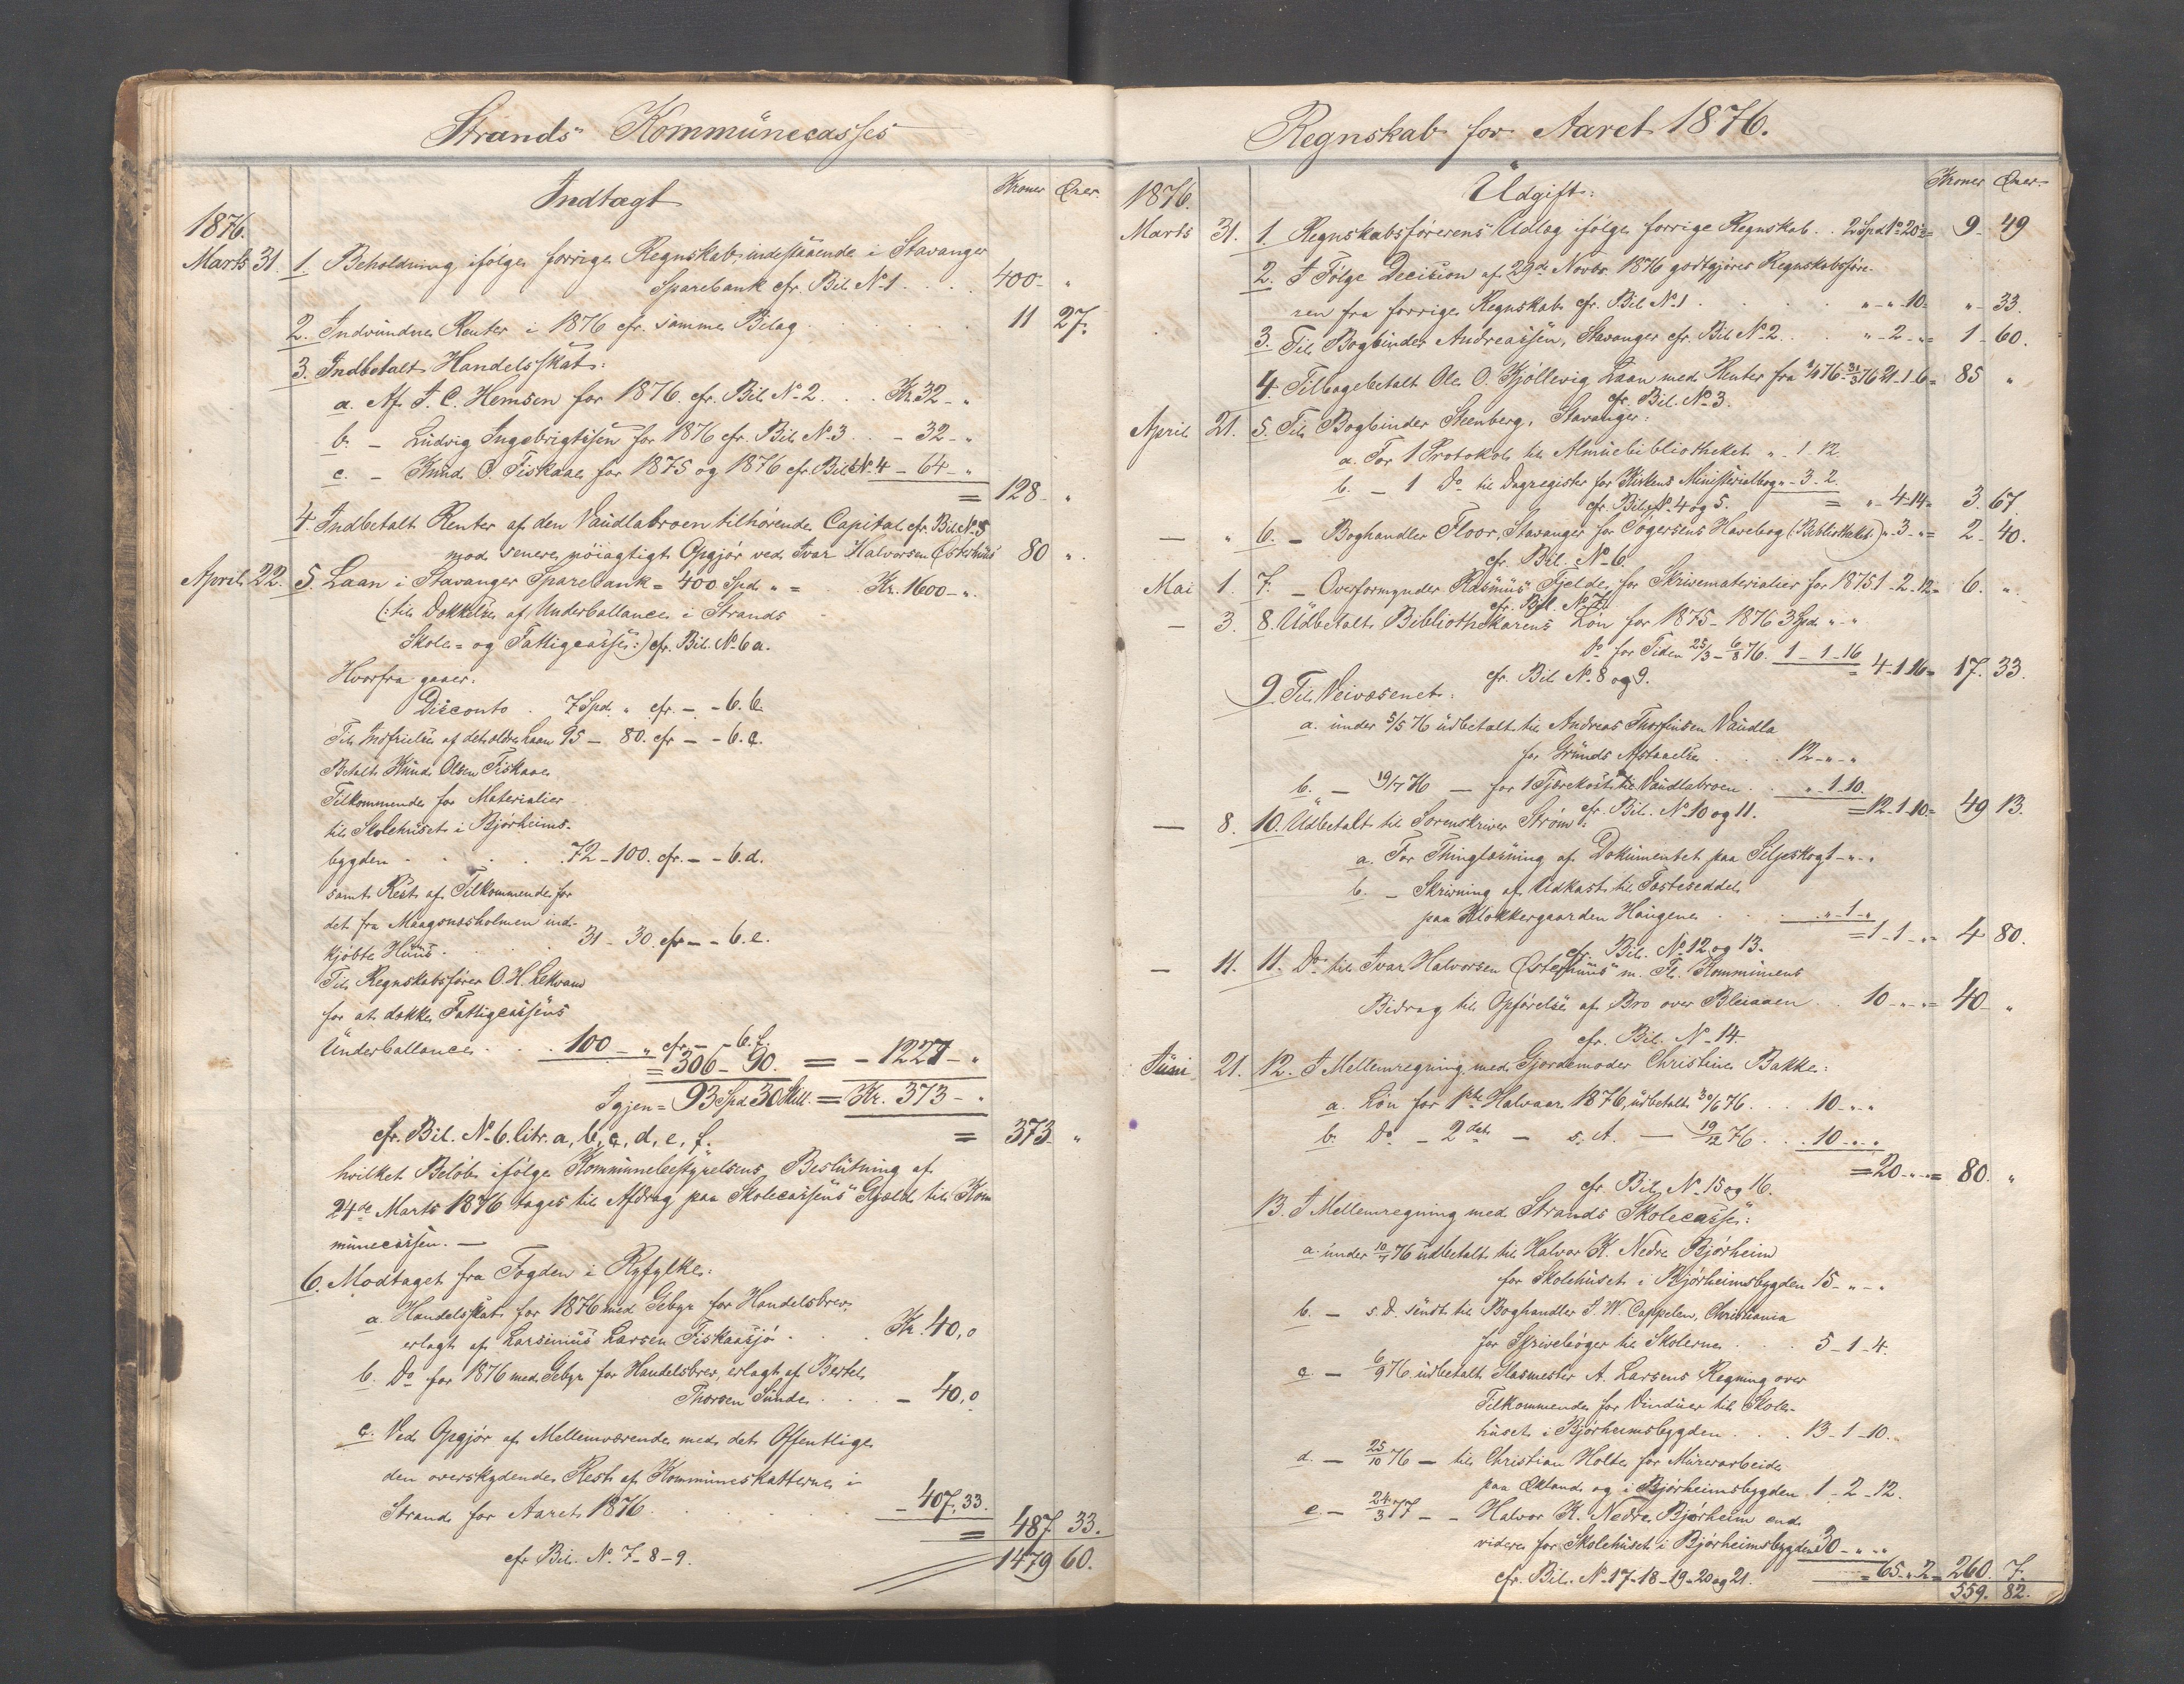 Strands Kommunecasses
Indtægt
Kroner Ører
1876.
Marts 31. 1. Beholdning ifølge forrige Regnskab, indestaaende i Stavanger
Sparebank cfr. Bil. No 1 . . . . 400 - "
2. Indvundne Renter i 1876 cfr. samme Bilag . . . . 11 27.
3. Indbetalt Handelsskat:
a. Af J. C. Hemsen for 1876. cfr. Bil. No 2 . . . Kr. 32 - "
b. - Ludvig Ingebrigtsen for 1876 cfr. Bil. No 3 . . - 32 - "
c. - Knud O. Fiskaae for 1875 og 1876 cfr. Bil. No 4 - 64 - "
= 128 - "
4. Indbetalt Renter af den Vaudlabroen tilhørende Capital cfr. Bil. No 5
mod senere nöiagtigt Opgjör ved Ivar Halvorsen Østerhuus 80 ".
April 22. 5. Laan i Stavanger Sparebank = 400 Spd. " = Kr. 1600 - ".
(: til Dækkelse af Underballance i Strands
Skole- og Fattigcasse :) cfr. Bil. No 6 a.
Hvorfra gaaer:
Disconto . 7 Spd. " cfr. - - 6. b.
Til Indfrielse af det ældre Laan 95 - 80. cfr. - - 6. c.
Betalt Knud Olsen Fiskaae
Tilkommende for Materialier
til Skolehuset i Bjørheims-
bygden . . . . . 72 - 100. cfr. - - 6. d.
samt Rest af Tilkommende for
det fra Maagenæsholmen ind-
kjöbte Huus . . . . 31 - 30. cfr. - - 6. e.
Til Regnskabsfører O. H. Lekvam
for at dække Fattigcassens
Underballance . . . 100 - " cfr. - - 6. f.
= 306 - 90. = - 1227 - "
Igjen = 93 Spd. 30 Skill. = Kr. 373 - "
cfr. Bil. No 6. litr. a, b, c, d, e, f. = 373 "
hvilket Beløb ifølge Kommunebestyrelsens Beslutning af
24de Marts 1876 tages til Afdrag paa Skolecassens Gjæld til Kom
munecassen. -
6. Modtaget fra Fogden i Ryfylke:
a. Handelsskat for 1876 med Gebyr for Handelsbrev,
erlagt af Larsinius Larsen Fiskaasjø . . . Kr. 40,0
b. Do for 1876 med Gebyr for Handelsbrev, erlagt af Bertel
Thorsen Sunde . . . - 40,0
c. Ved Opgjör af Mellemværende med det Offentlige
den overskydende Rest af Kommuneskatterne i
Strand for Aaret 1876 . . . . . - 407. 33.
= 487 33.
cfr. Bil. No. 7 - 8 - 9. 1479 60.
Regnskab for Aaret 1876.
Udgift:
Kroner Ører
1876.
Marts 31. 1. Regnskabsførerens Udlæg ifølge forrige Regnskab . . 2 Spd. 1 20 = 9 - 49
2. I Følge Decision af 29de Novbr. 1876 godtgjöres Regnskabsföre-
ren fra forrige Regnskab cfr. Bil. No 1 . . . . " - " 10 = " - 33.
3. Til Bogbinder Andreassen, Stavanger cfr. Bil. No 2 . . . " - 2 - " = 1 - 60.
4. Tilbagebetalt Ole O. Kjöllevig Laan med Renter fra 76 - 31/3 76 21 - 1. 6 = 85 "
cfr. Bil. No 3.
April 21. 5. Til Bogbinder Steenberg, Stavanger:
a. For 1 Protokol til Almuebibliotheket " - 1. 12.
b. - 1 Do til Dagregister for Kirkens Ministerialbog " - 3. 2.
cfr. Bil. No 4 og 5. = " 4. 14 = 3. 67.
- " 6. - Boghandler Floor, Stavanger for Høgersens Havebog (: Bibliotheket :) " 3 - " = 2 - 40.
cfr. Bil. No 6.
Mai 1. 7. - Overformynder Rasmus Fjelde for Skrivematerialier for 1875 1 - 2 - 12 = 6. "
cfr. Bil. No 7.
- 3. 8. Udbetalt Bibliothekarens Løn for 1875 - 1876 3 Spd. " - "
Do for Tiden 25/3 - 6/8 76. 1 - 1 - 16
cfr. Bil. No 8 og 9. = 4 - 1 16 = 17. 33.
9. Til Veivæsenet:
a. under 5/5 76 udbetalt til Andreas Thorfinsen Vaudla
for Grunds Afstaaelse . . . . 12 - " - "
b. - 19/7 76 - for 1 Tjærekost til Vaudlabroen . . " 1 - 10.
cfr. Bil. No 10 og 11. = 12 - 1 - 10 = 49 13.
- 8. 10. Udbetalt til Sorenskriver Ström:
a. For Thinglæsning af Dokumentet paa Siljeskog 1 - " - "
b. - Skrivning af Udkast til Fæsteseddel
paa Klokkergaarden Haugene . . . . " - 1 - "
cfr. Bil. No 12 og 13. = 1 - 1 - " = 4 80.
- 11. 11. Do til Ivar Halvorsen Østerhuus m. Fl. Kommunens
Bidrag til Opförelse af Bro over Bleiaaen . . 10 - " - " = 40 - "
cfr. Bil. No 14.
Juni 21. 12. I Mellemregning med Gjordemoder Christine Bakke:
a. Løn for 1ste Halvaar 1876, udbetalt 30/6 76 . . . 10 - " - "
b. Do - 2det - s. A. - 19/12 76 . . . 10 - " - "
cfr. Bil. No 15 og 16. = 20 - " - " = 80. "
13. I Mellemregning med Strands Skolecasse:
a. under 10/4 76 udbetalt til Halvor K. Nedre Bjørheim
for Skolehuset i Bjørheimsbygden 15 - " - "
b. - s. D. sendt til Boghandler J. W. Cappelen, Christiania
for Skrivebøger til Skolerne . . . 5 - 1 - 4.
c. - 6/9 76 udbetalt Glasmester A. Larsens Regning over
Tilkommende for Vinduer til Skole-
huset i Bjørheimsbygden . . . 13 - 1 - 10.
d. - 25/10 76 - til Christian Holte for Murerarbeide
paa Økland og i Bjørheimsbygden . 1 - 2 - 12.
e. - 24/3 77 - - Halvor K. Nedre Bjørheim end-
videre for Skolehuset i Bjørheimsbygden 30 - " - "
cfr. Bil. No 17 - 18 - 19 - 20 og 21. = 65 - " 2 = 260. 7.
559. 82.